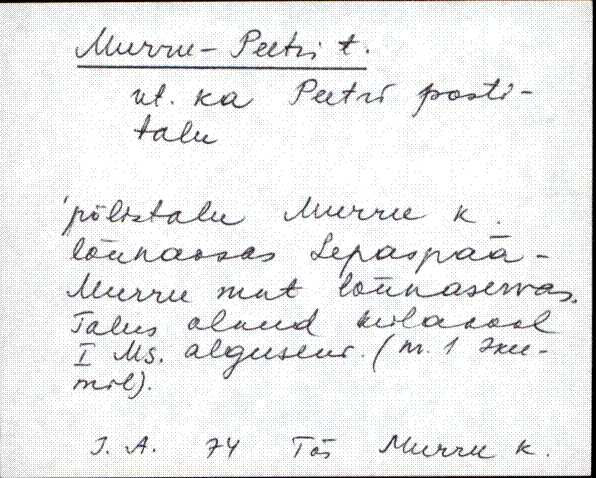 Murru-Peetri t.
vt. ka Peetri posti-
talu
'põlistalu Murru k.
lõunaosas Lepaspää-
Murru mnt lõunaservas.
Talus olnud külakool
I Ms. alguseni. (m. 1
mil).
J. A. 74 Tõs Murru k.